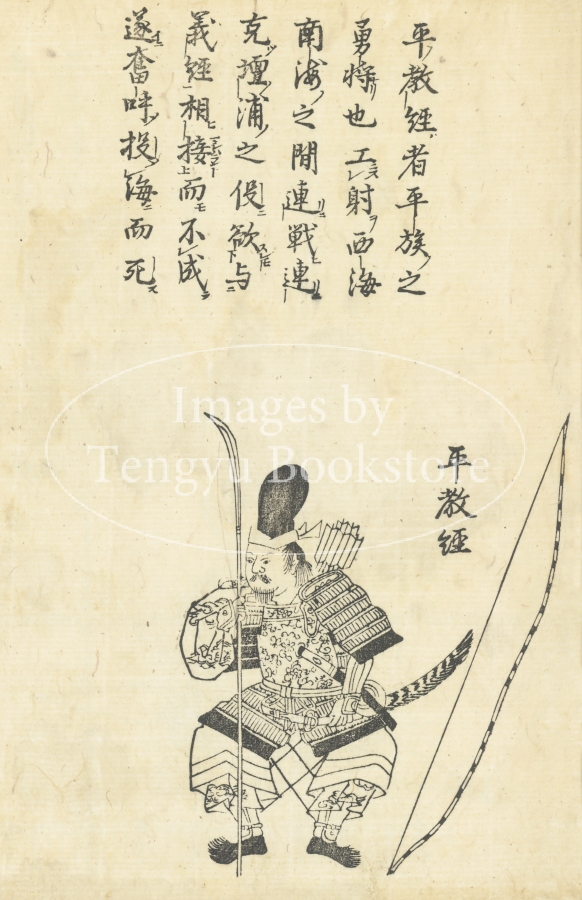 平教経者平族之
勇将也工射西海
南海之間連戦連
克壇浦之役欲与
義経相接而不成
遂奮呼投海而死
平教経
Images by
Tengyu Bookstore